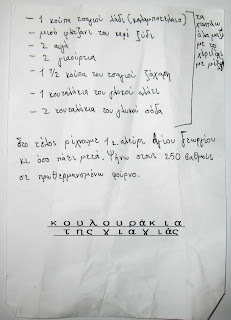 - 1 κούπα τσαγιού λάδι (καλαμποκέλαιο)
- μισό φλιτζάνι του καφέ ξύδι
- 2 αυγά
- 2 γιαούρτια
- 1 1/2 κούπα του τσαγιού ζάχαρη
- 1 κουταλάκια του γλυκού αλάτι
- 2 κουταλάκια του γλυκού σόδα
τα
όλα μαζί
με το
Στο τέλος ρίχνουμε 1 κ. αλεύρι Αγίου Γεωργίου
κι όσο πάει μετά. Ψήνω στους 250 βαθμούς
σε προθερμασμένο φούρνο.
κουλουράκια
της γιαγιάς